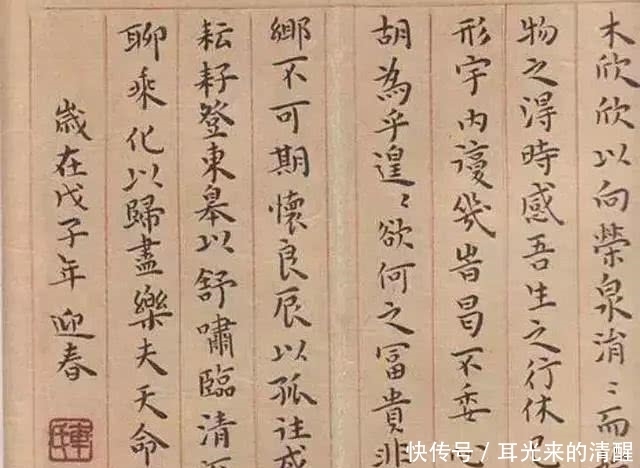 木欣欣以向榮泉涓〻而
物之得時感吾生之行休
形宇內復幾旹曷不委心
胡為乎遑〻欲何之冨貴非
鄉不可期懷良辰以孤往或
耘耔登東皋以舒嘯臨清
聊乘化以歸盡樂夫天命
歲在戊子年迎春
快传号/耳光来的清醒